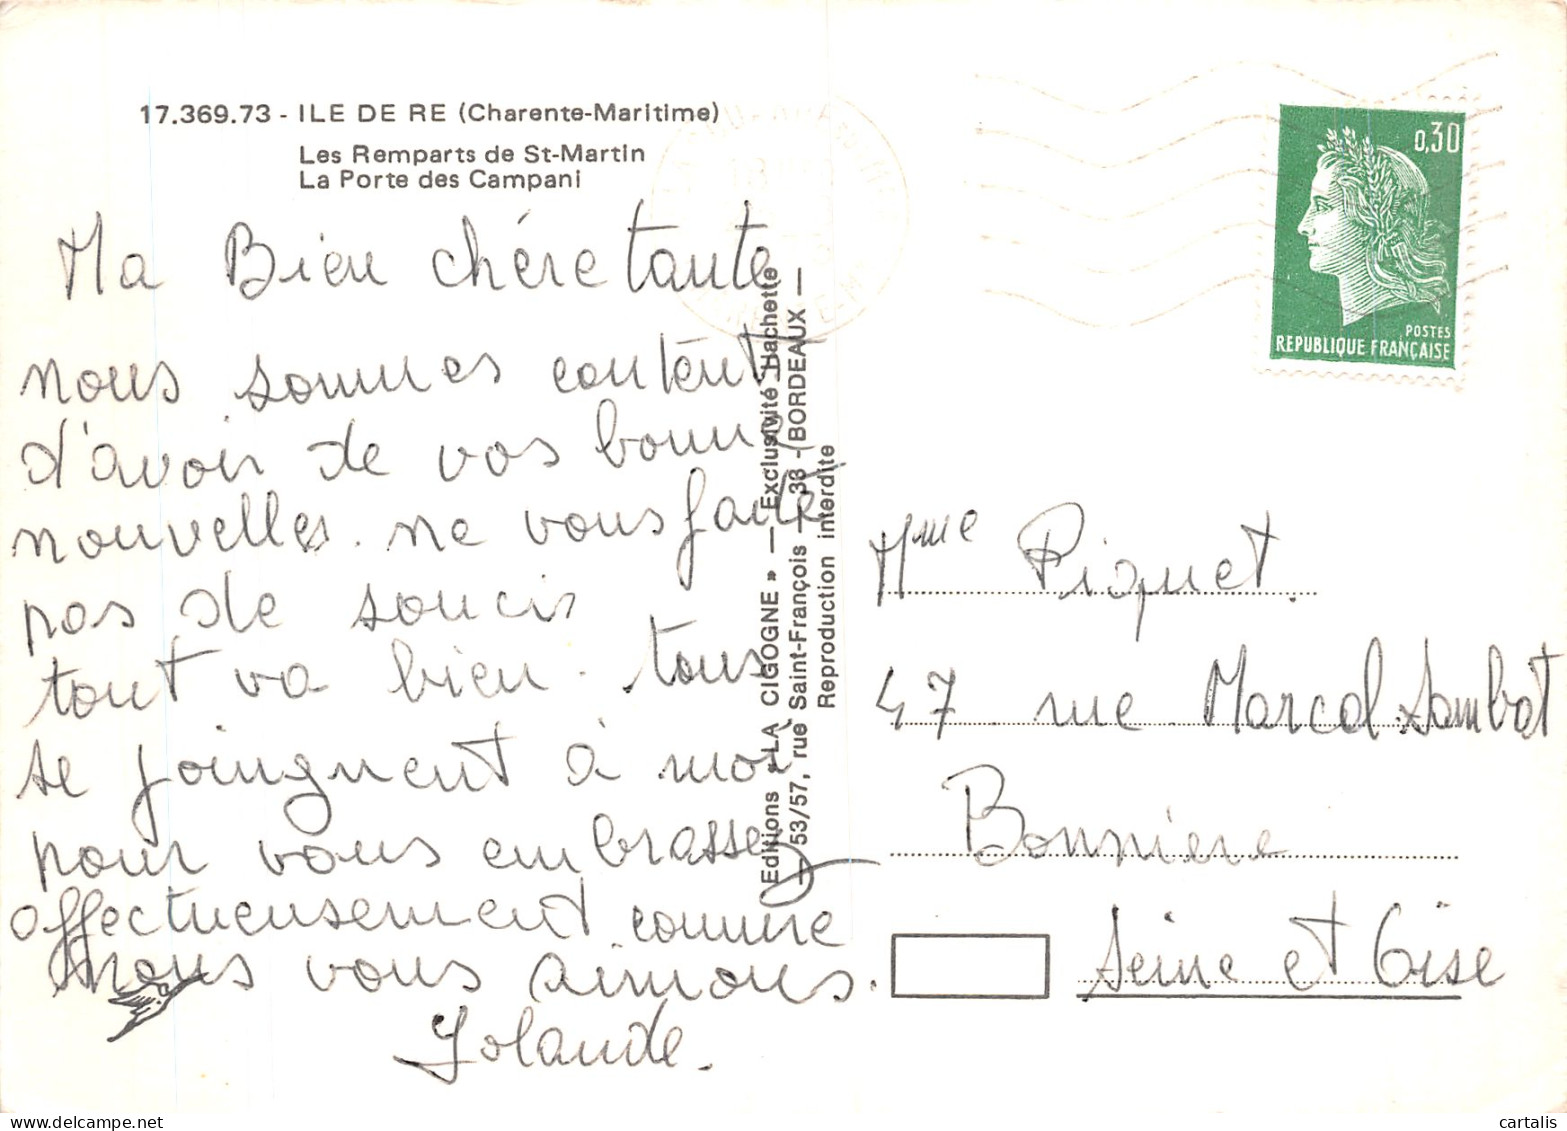 17.369.73 - ILE DE RE (Charente-Maritime)
Les Remparts de St-Martin
La Porte des Campani
Ma Bien chére tante
nous sommes content
d'avoir de vos bonne
nouvelles. ne vous faite
pas de soucis
tout va bien. tous
se joingnent à moi
pour vous embrasser
affectueusement comme
nous vous aimons.
Yolande.
Editions « LA CIGOGNE » — Exclusivité Hachette
— 53/57, rue Saint-François — 33 - BORDEAUX —
Reproduction interdite
0,30
POSTES
REPUBLIQUE FRANÇAISE
Mme Piquet.
47 rue Marcel Sambat
Bonniere
Seine et Oise
cartalis